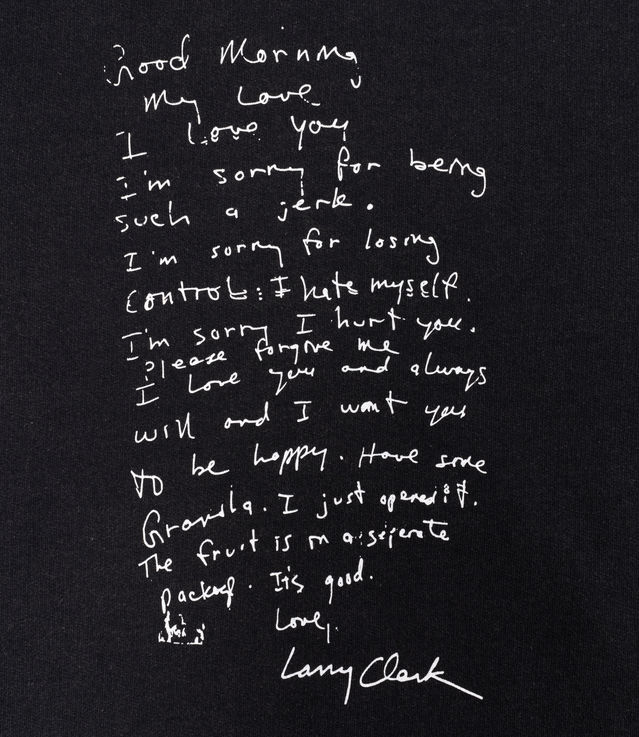 Good Morning
My Love
I Love you
I'm sorry for being
such a jerk.
I'm sorry for losing
control. I hate myself.
I'm sorry I hurt you.
Please forgive me
I love you and always
will and I want you
to be happy. Have some
Granola. I just opened it.
The fruit is in a seperate
packag. It's good.
Love,
Larry Clark